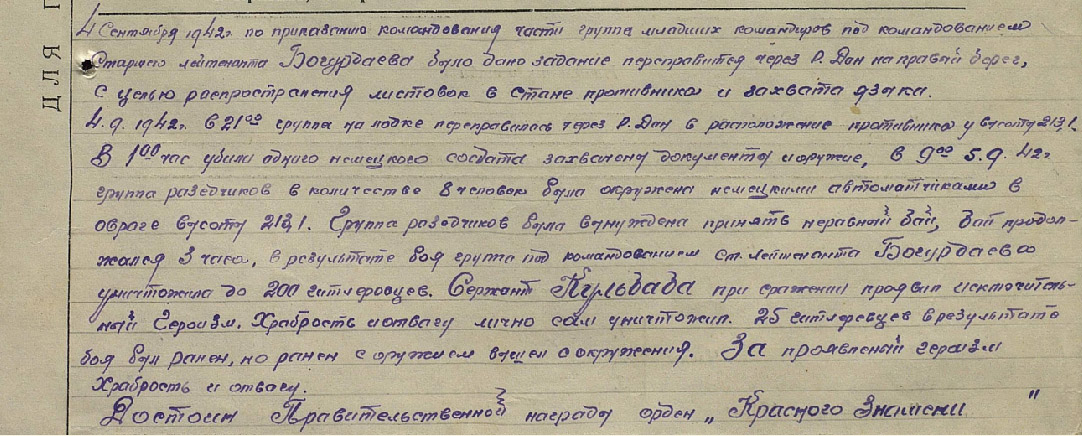 ДЛЯ
4 Сентября 1942г. по приказанию командования части группа младших командиров под командованием
Старшего лейтенанта Богурдаева было дано задание переправится через Р. Дон на правый берег,
с целью распространения листовок в стане противника и захвата языка.
4.9.1942г. в 21⁰⁰ группа на лодке переправилась через Р. Дон в расположение противника у высоты 213,1.
В 1⁰⁰ час убили одного немецкого солдата захвачены документы и оружие, в 9⁰⁰ 5.9.42г
группа разедчиков в количестве 8 человек была окружена немецкими автоматчиками в
овраге высоты 213,1. Группа разедчиков была вынуждена принять неравный бой, бой продол-
жался 3 часа, в результате боя группа под командованием ст. лейтенанта Богурдаева
уничтожила до 200 гитлеровцев. Сержант Кульбада при сражении проявил исключитель-
ный Героизм. Храбрость и отвагу лично сам уничтожил. 25 гитлеровцев в результате
боя был ранен, но ранен с оружием вышел с окружения. За проявленый героизм
Храбрость и отвагу.
Достоин Правительственной награды орден „Красного Знамени"